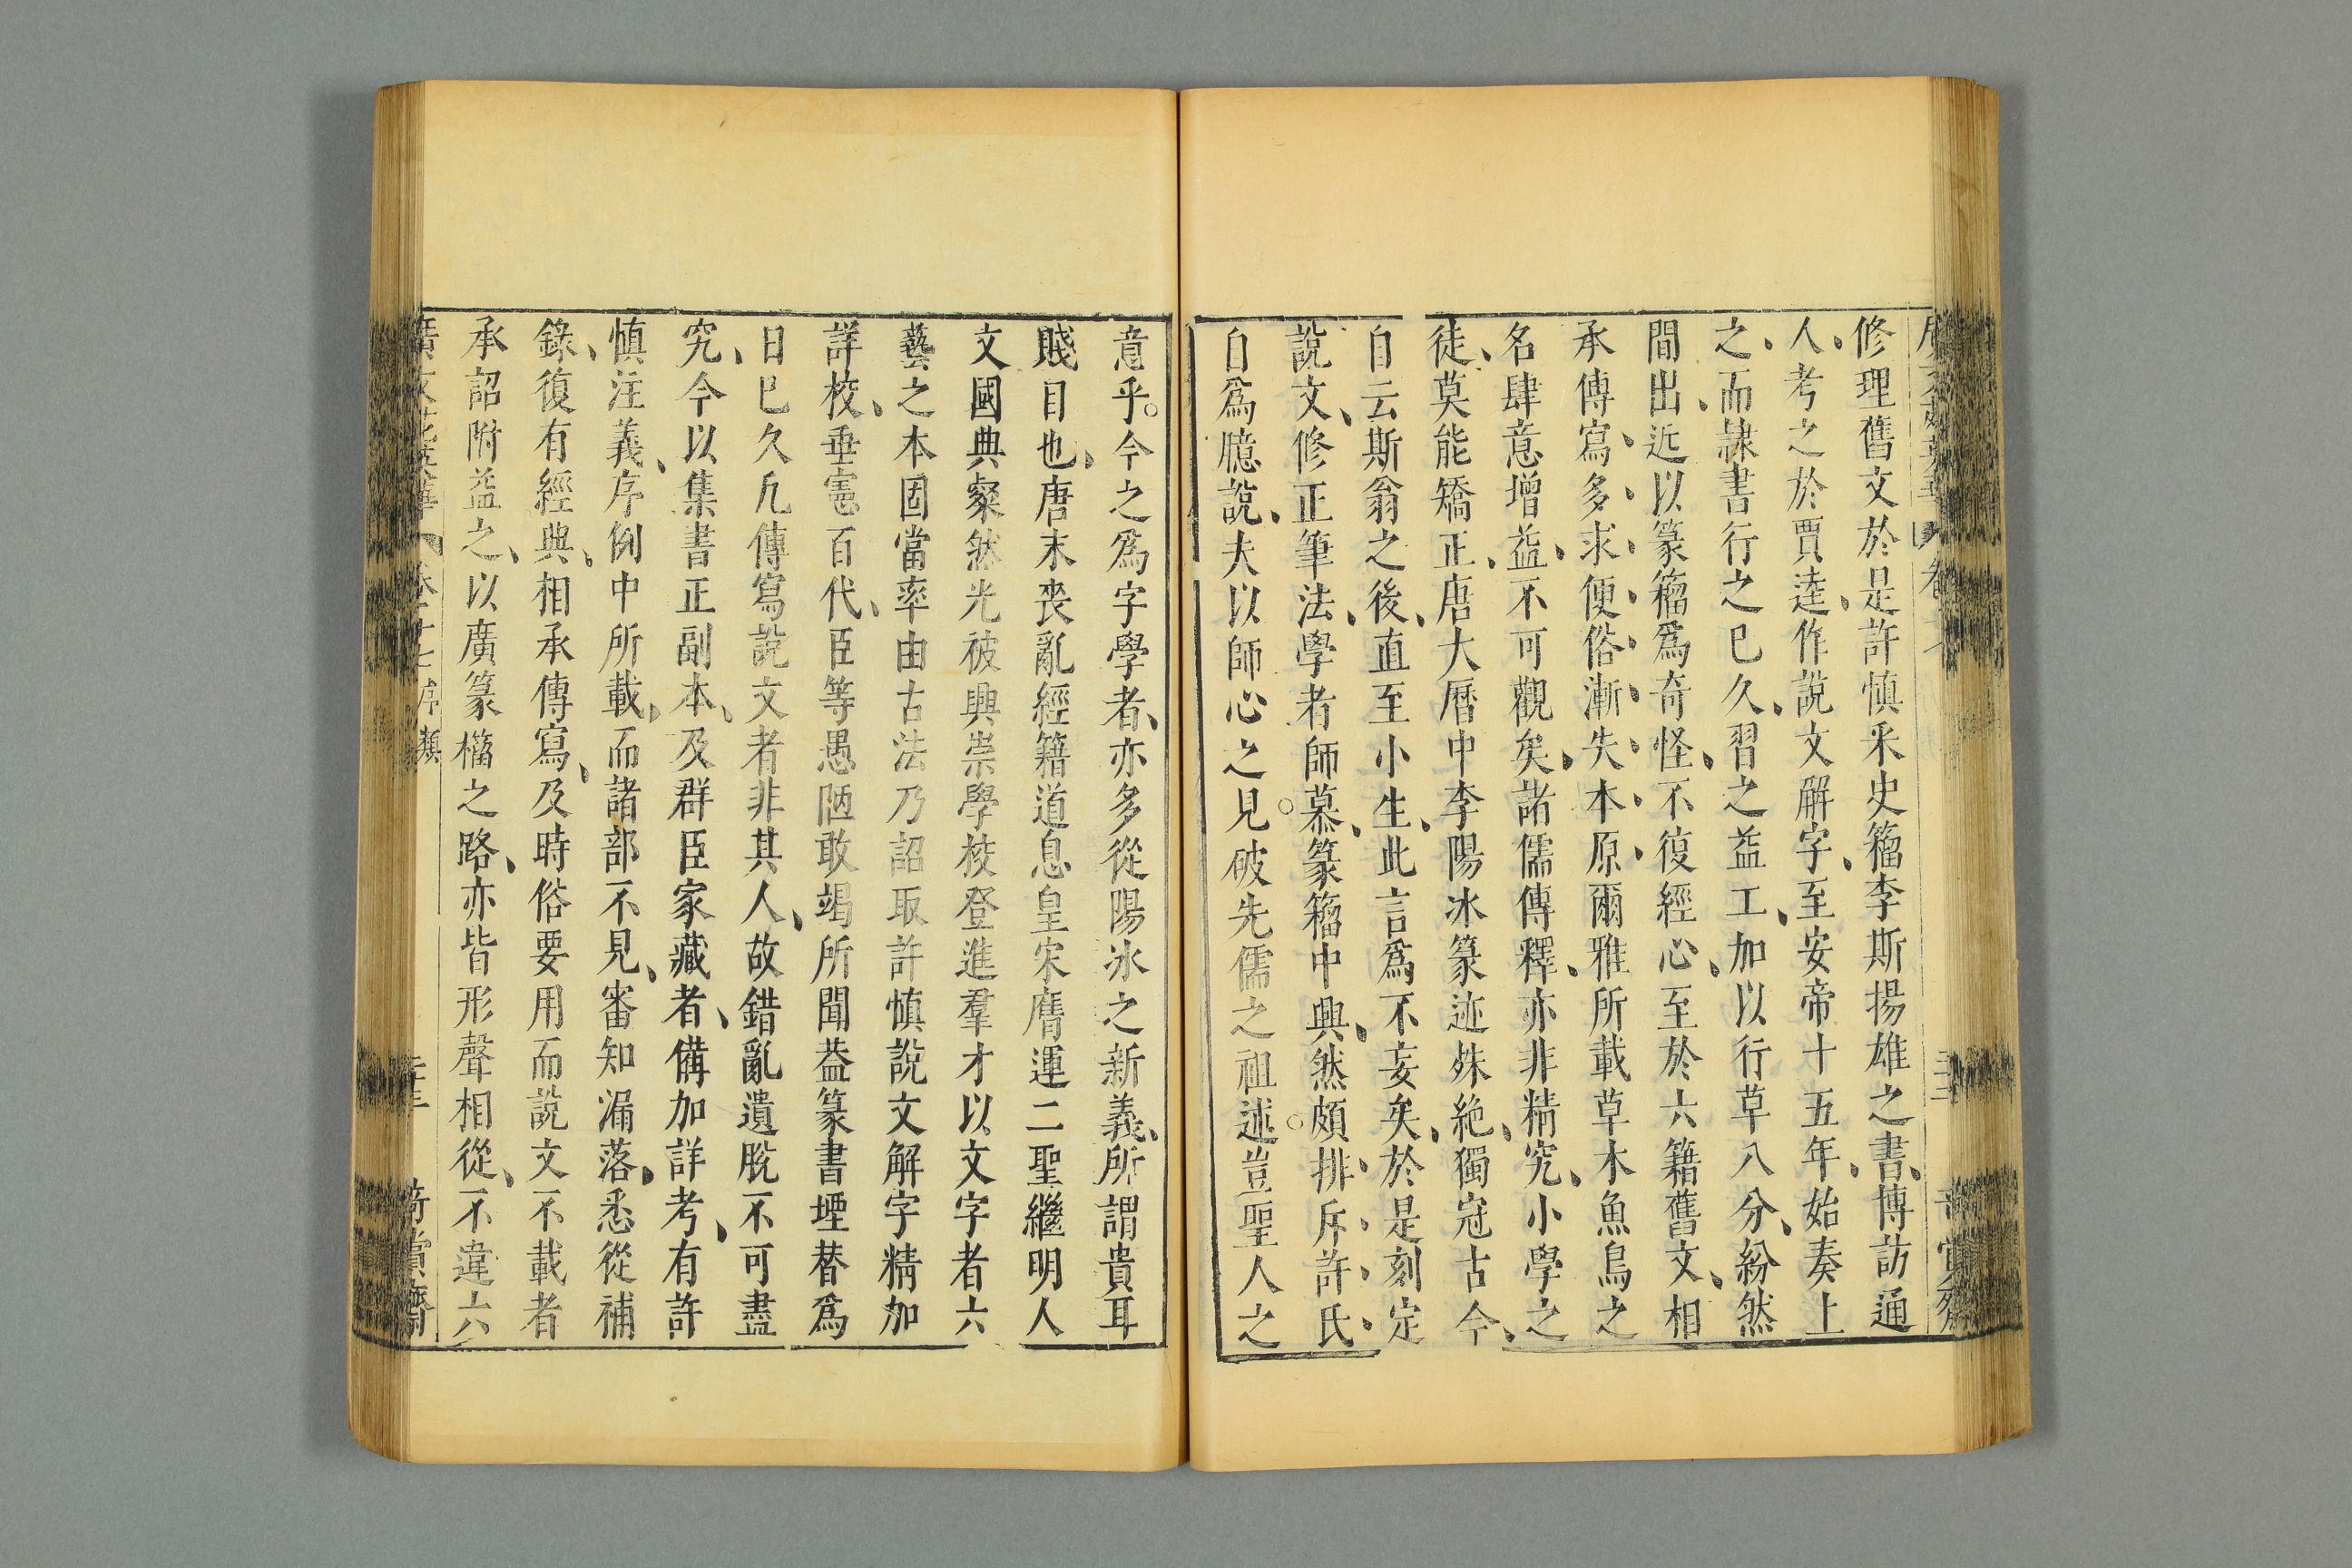 修理舊文於是許慎采史籀李斯揚雄之書、博訪通
人、考之於賈逵、作說文解字、至安帝十五年、始奏上
之、而隸書行之巳久、習之益工、加以行草八分、紛然
間出、近以篆籀爲奇怪、不復經心、至於六籍舊文、相
承傳寫、多求便俗、漸失本原、爾雅所載草木魚鳥之
名肆意增益、不可觀矣、諸儒傳釋、亦非精究、小學之
徒、莫能矯正、唐大曆中李陽冰篆迹殊絶、獨冠古今、
自云斯翁之後、直至小生、此言爲不妄矣、於是刻定
說文、修正筆法、學者師慕、篆籀中興、然頗排斥許氏、
自爲臆說、夫以師心之見。破先儒之祖述。豈聖人之
意乎。今之爲字學者、亦多從陽冰之新義、所謂貴耳
賤目也、唐末喪亂經籍道息皇宋膺運二聖繼明人
文國典粲然光被興崇學校登進羣才以文字者六
藝之本固當率由古法乃詔取許慎說文解字精加
詳校、垂憲百代、臣等愚陋敢竭所聞葢篆書堙替爲
日巳久凡傳寫說文者非其人、故錯亂遺脫不可盡
究、今以集書正副本、及群臣家藏者、備加詳考、有許
慎注義、序例中所載、而諸部不見、審知漏落、悉從補
錄、復有經典、相承傳寫、及時俗要用而說文不載者
承詔附益之、以廣篆籀之路、亦皆形聲相從、不違六